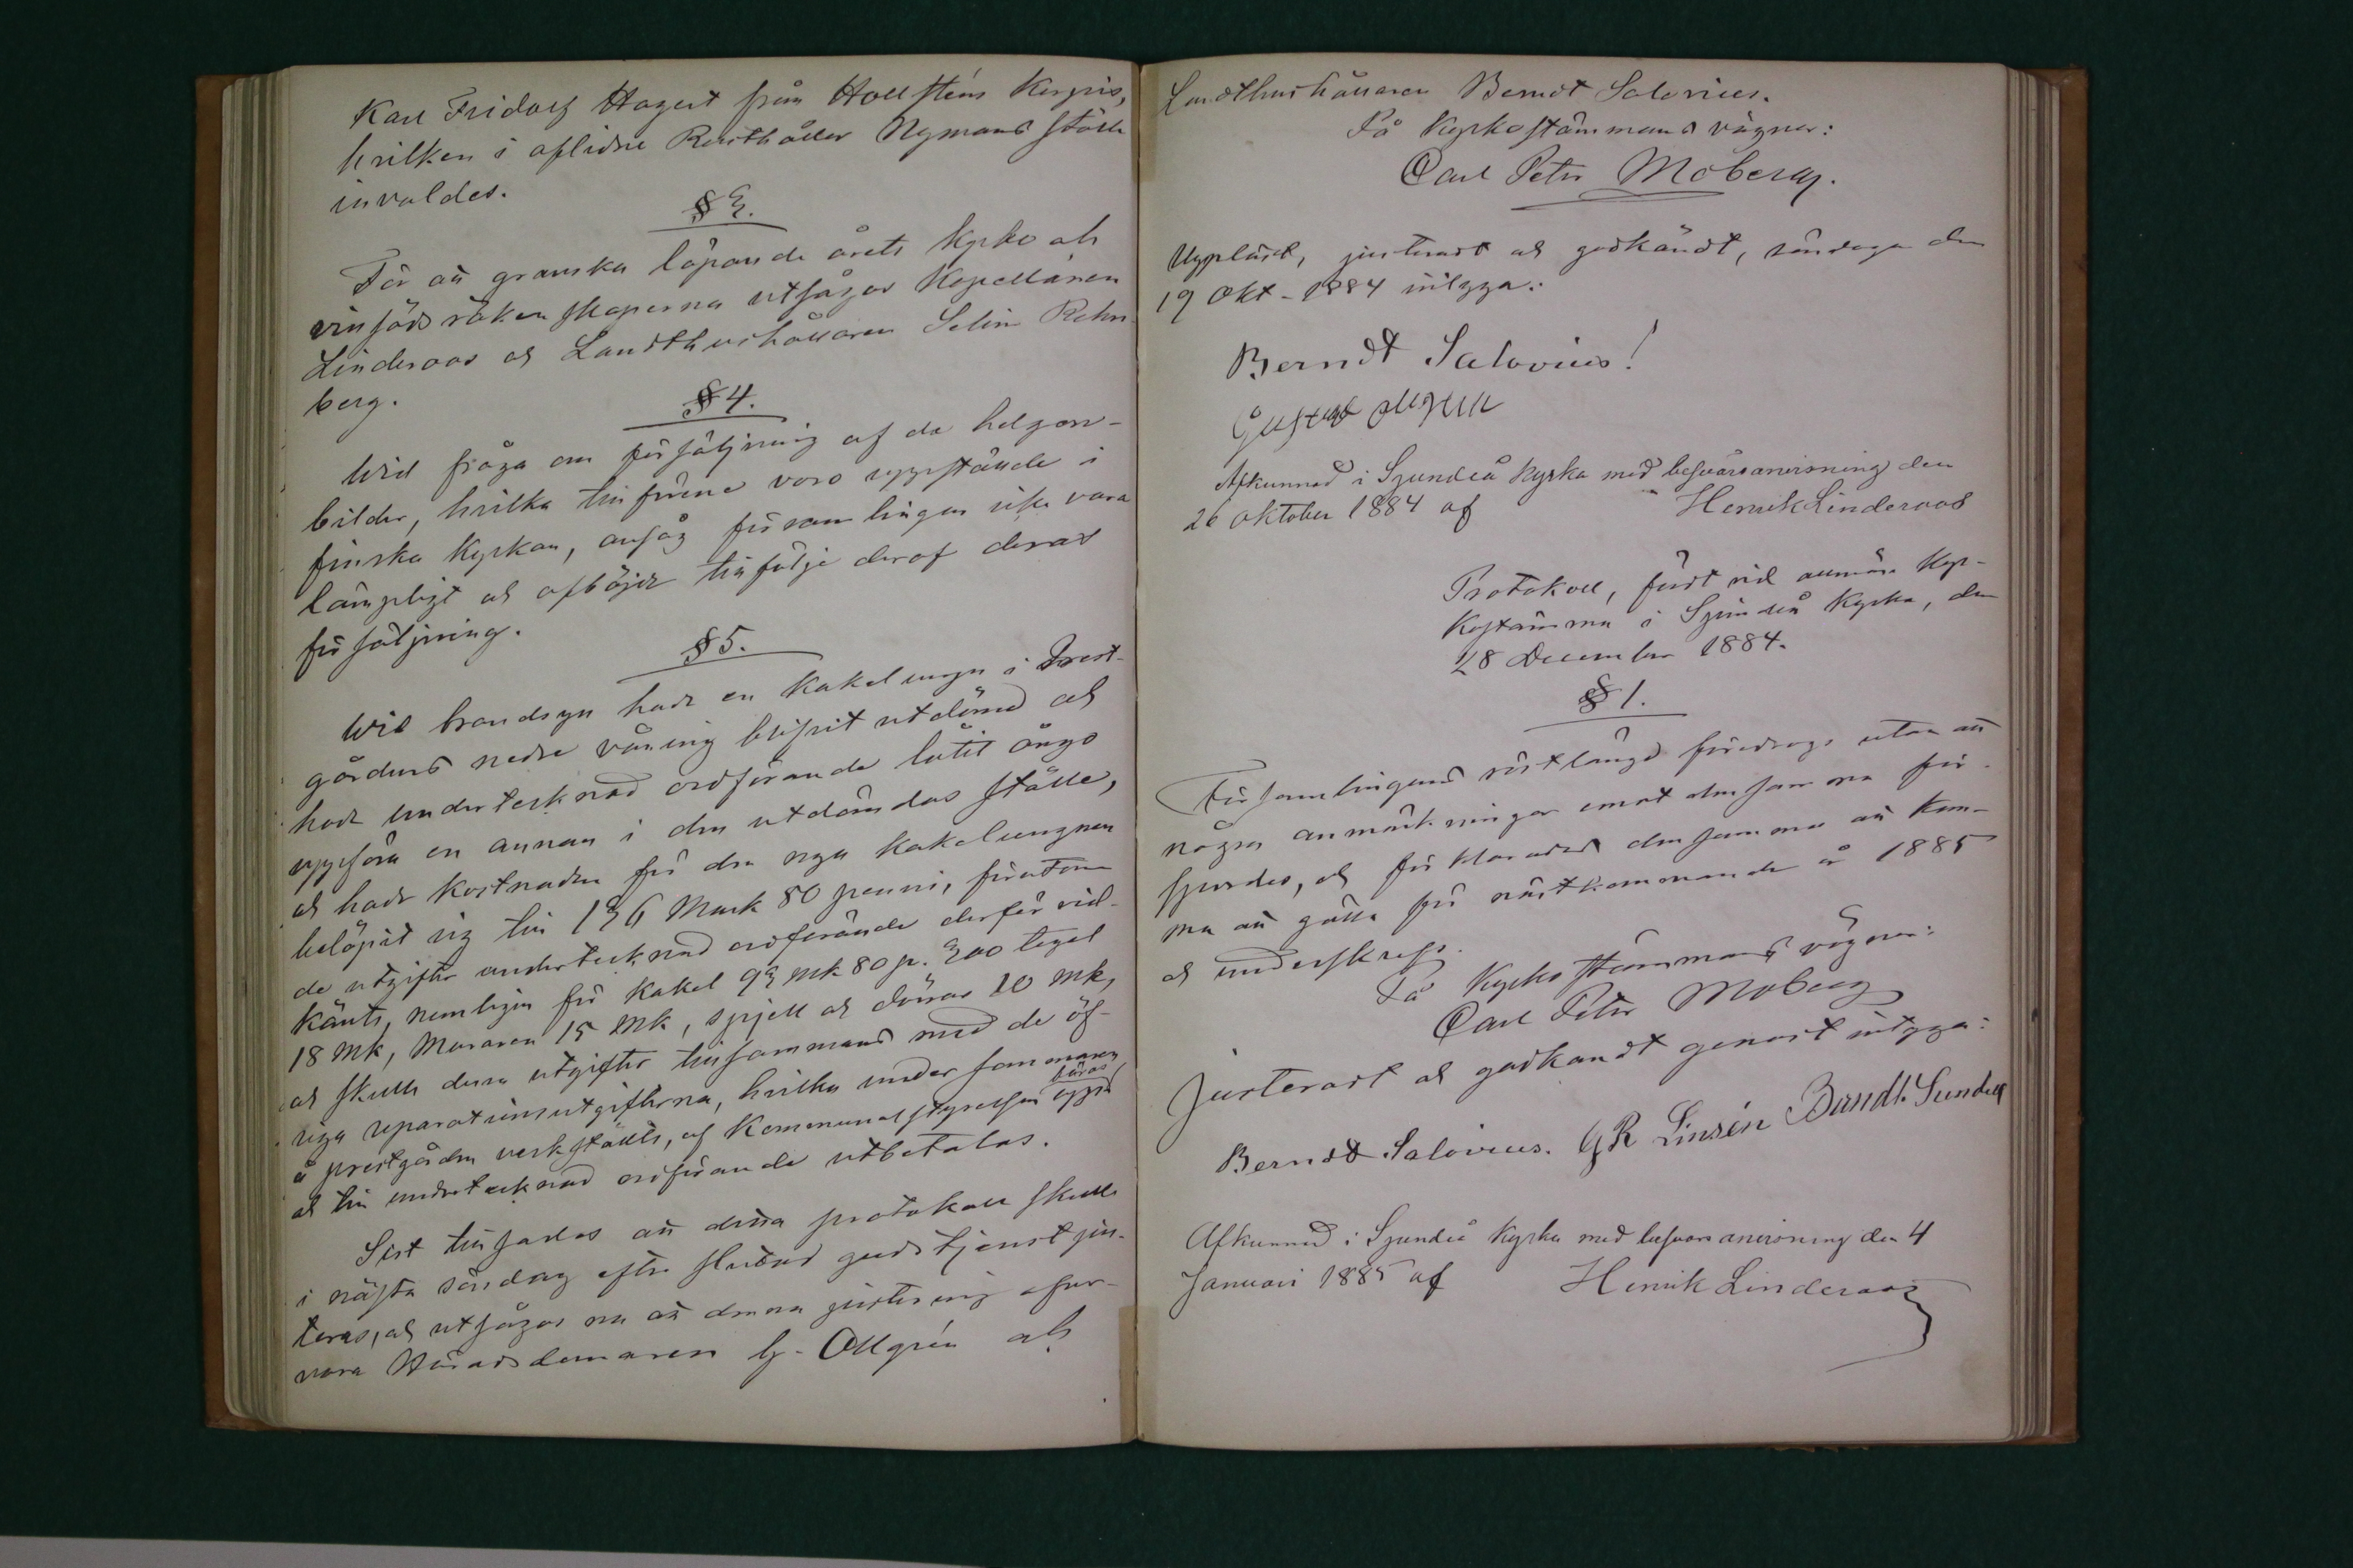 Karl Fridolf Hagert från Hollsténs Kerpis,
hvilken i aflidne Rusthåller Nymans ställe
invaldes.
§ 3.
För att granska löpande årets kyrko och
vinsäds räkenskaperna utsågos Kapellanen
Linderoos och Landthushållaren Selin Rehn-
berg.
§ 4.
Wid fråga om försäljning af de helgon-
bilder, hvilka tillförene voro uppstälde i
finska kyrkan, ansåg församlingen icke vara
lämpligt och afböjde till följe deraf deras
försäljning.
§ 5.
Wid brandsyn hade en kakelugn i Prest-
gårdens nedre våning blifvit utdömd och
hade undertecknad ordförande låtit
uppföra en annan i den utdömdas ställe,
och hade kostnaden för den nya kakelungnen
belöpit sig till 136 Mark 80 penni, förutom
de utgifter undertecknad ordförande derför vid-
känts, nemligen för kakel 93 mk 80 p. 300 tegel
18 mk, Muraren 15 mk, spjell och dörrar 10 mk,
och skulle dessa utgifter tillsammans med de öf-
riga reparationsutgifterna, hvilka under sommaren
å prestgården verkstälts, af Kommunalstyrelsen uppbäras
och till undertecknad ordförande utbetalas.
Sist tillsades att detta protokoll skulle
i nästa söndag efter slutad gudstjenst jus-
teras, och utsågos nu att denna justering öfver-
vara Häradsdomaren G. Ollgrén och
Landthushållaren Berndt Salovius.
På Kyrkostämmans vägnar:
Carl Petr Moberg.
Uppläst, justeradt och godkändt, söndagen den
19 Okt. 1884 intyga:
Berndt Salovius!
Gustaf Ollgren
Afkunnad i Sjundeå Kyrka med besvärsanvisning den
26 oktober 1884 af Henrik Linderoos
Protokoll, fördt vid allmän kyr-
kostämma i Sjundeå kyrka, den
28 December 1884.
§ 1.
Församlingens röstlängd föredrogs utan att
några anmärkningar emot densamma för-
spordes, och förklarades densamma att kom-
ma att gälla för nästkommande år 1885
och underskrefs.
På Kyrkostämmans vägnar:
Carl Petr Moberg
Justeradt och godkändt genast intyga:
Berndt Salovius. GR Linsén Berndt Sundell
Afkunnad i Sjundeå Kyrka med besvärsanvisning den 4
Januari 1885 af Henrik Linderoos